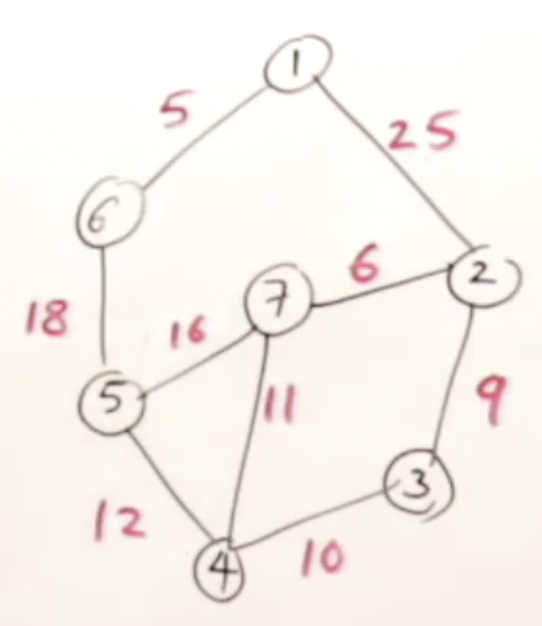 1
5
25
6
6
7
2
18
16
5
11
9
3
12
4
10